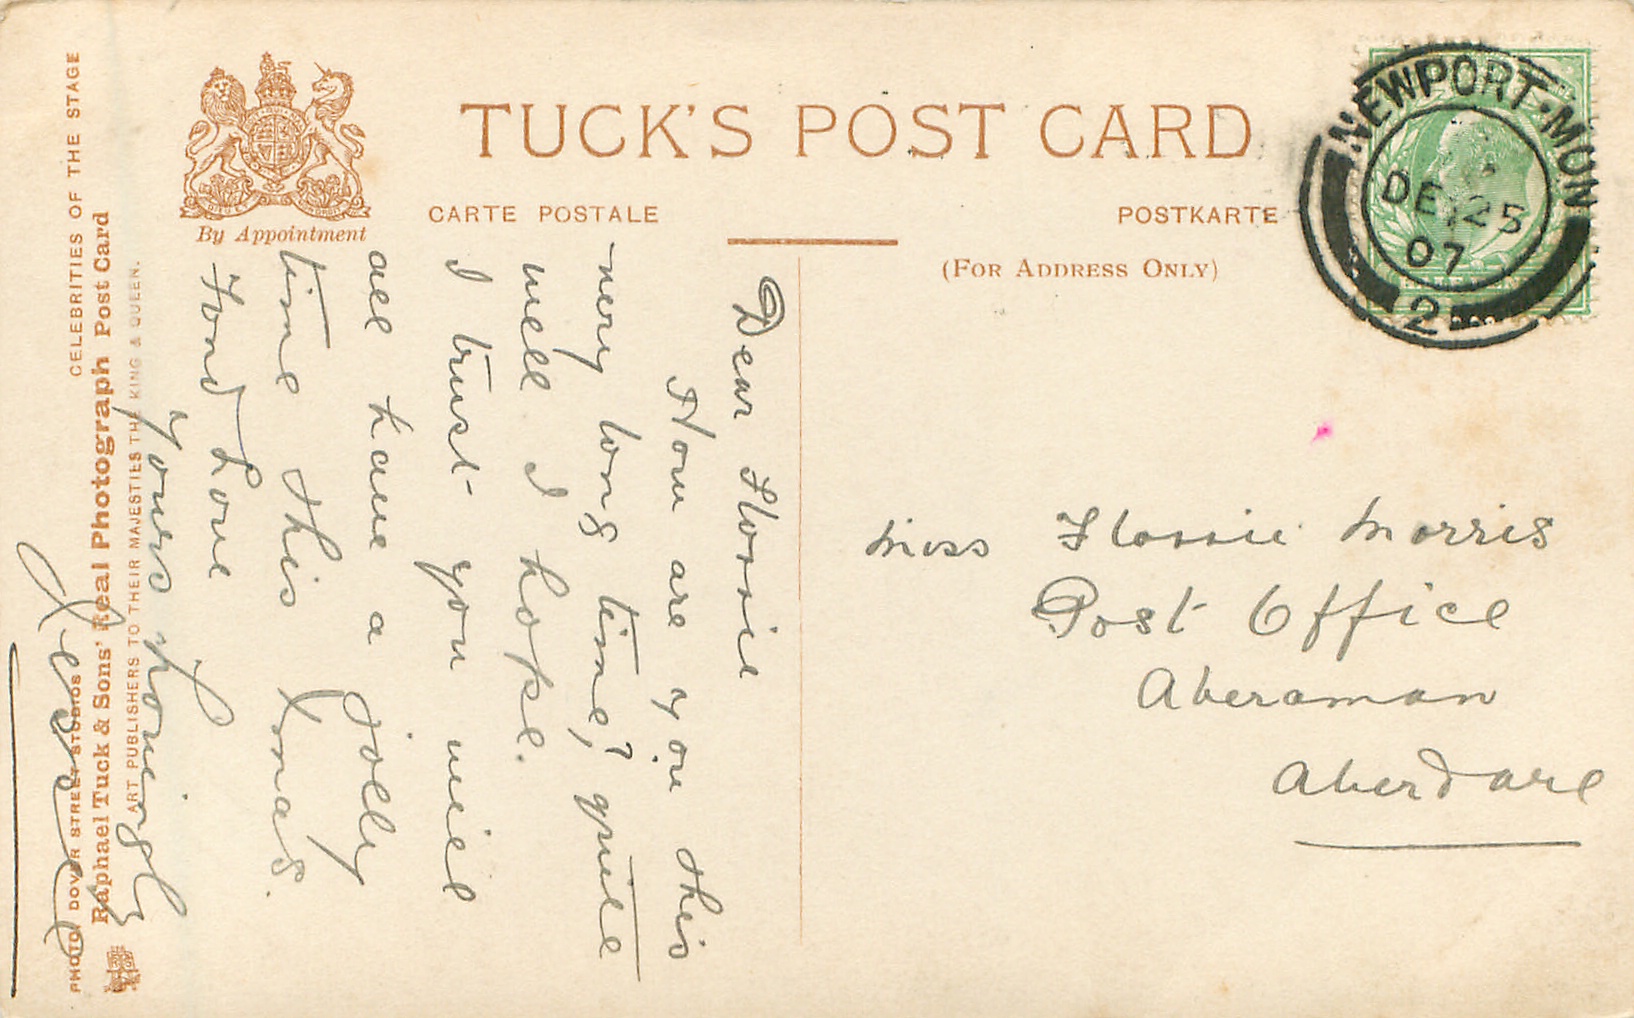 TUCK'S POST CARD
CARTE POSTALE
POSTKARTE
(FOR ADDRESS ONLY)
By Appointment
NEWPORT·MON
DE 25
07
2
Miss Florrie Morris
Post Office
Aberaman
Aberdare
Dear Florrie
How are you this
very long time, quite
well I hope.
I trust you will
all have a jolly
time this Xmas.
Fond Love
yours lovingly
Jessie
CELEBRITIES OF THE STAGE
PHOTO DOVER STREET STUDIOS
Raphael Tuck & Sons' Real Photograph Post Card
ART PUBLISHERS TO THEIR MAJESTIES THE KING & QUEEN.